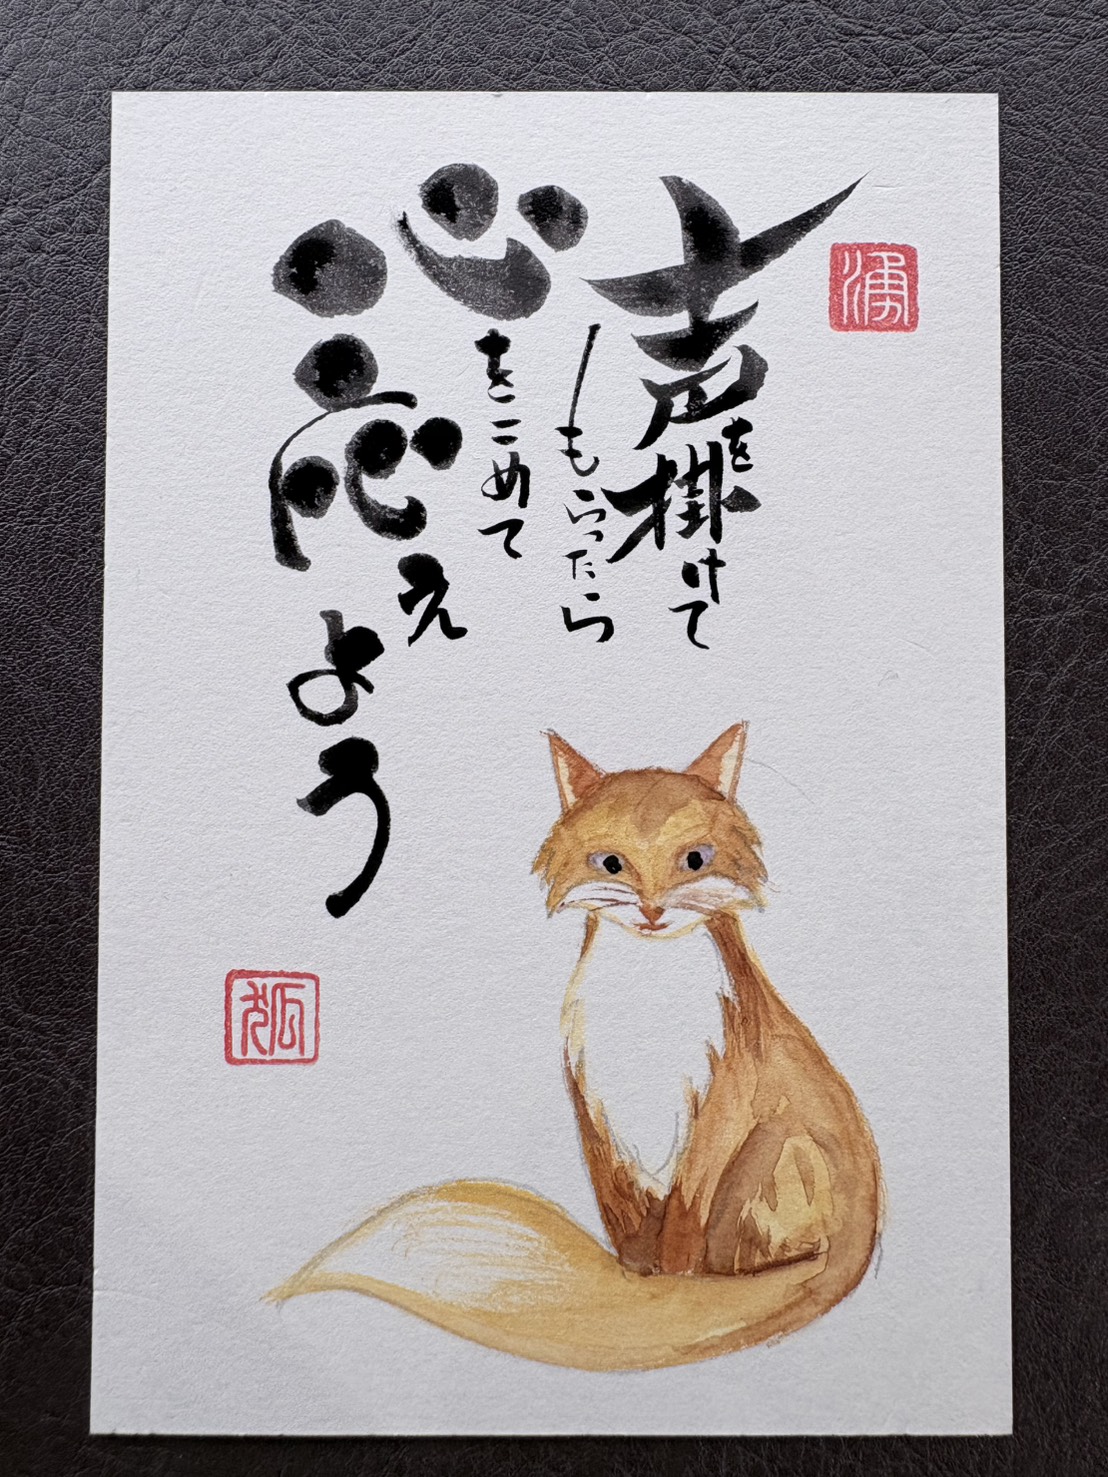 湧
声を掛けて
もらったら
心をこめて
応え
よう
狐